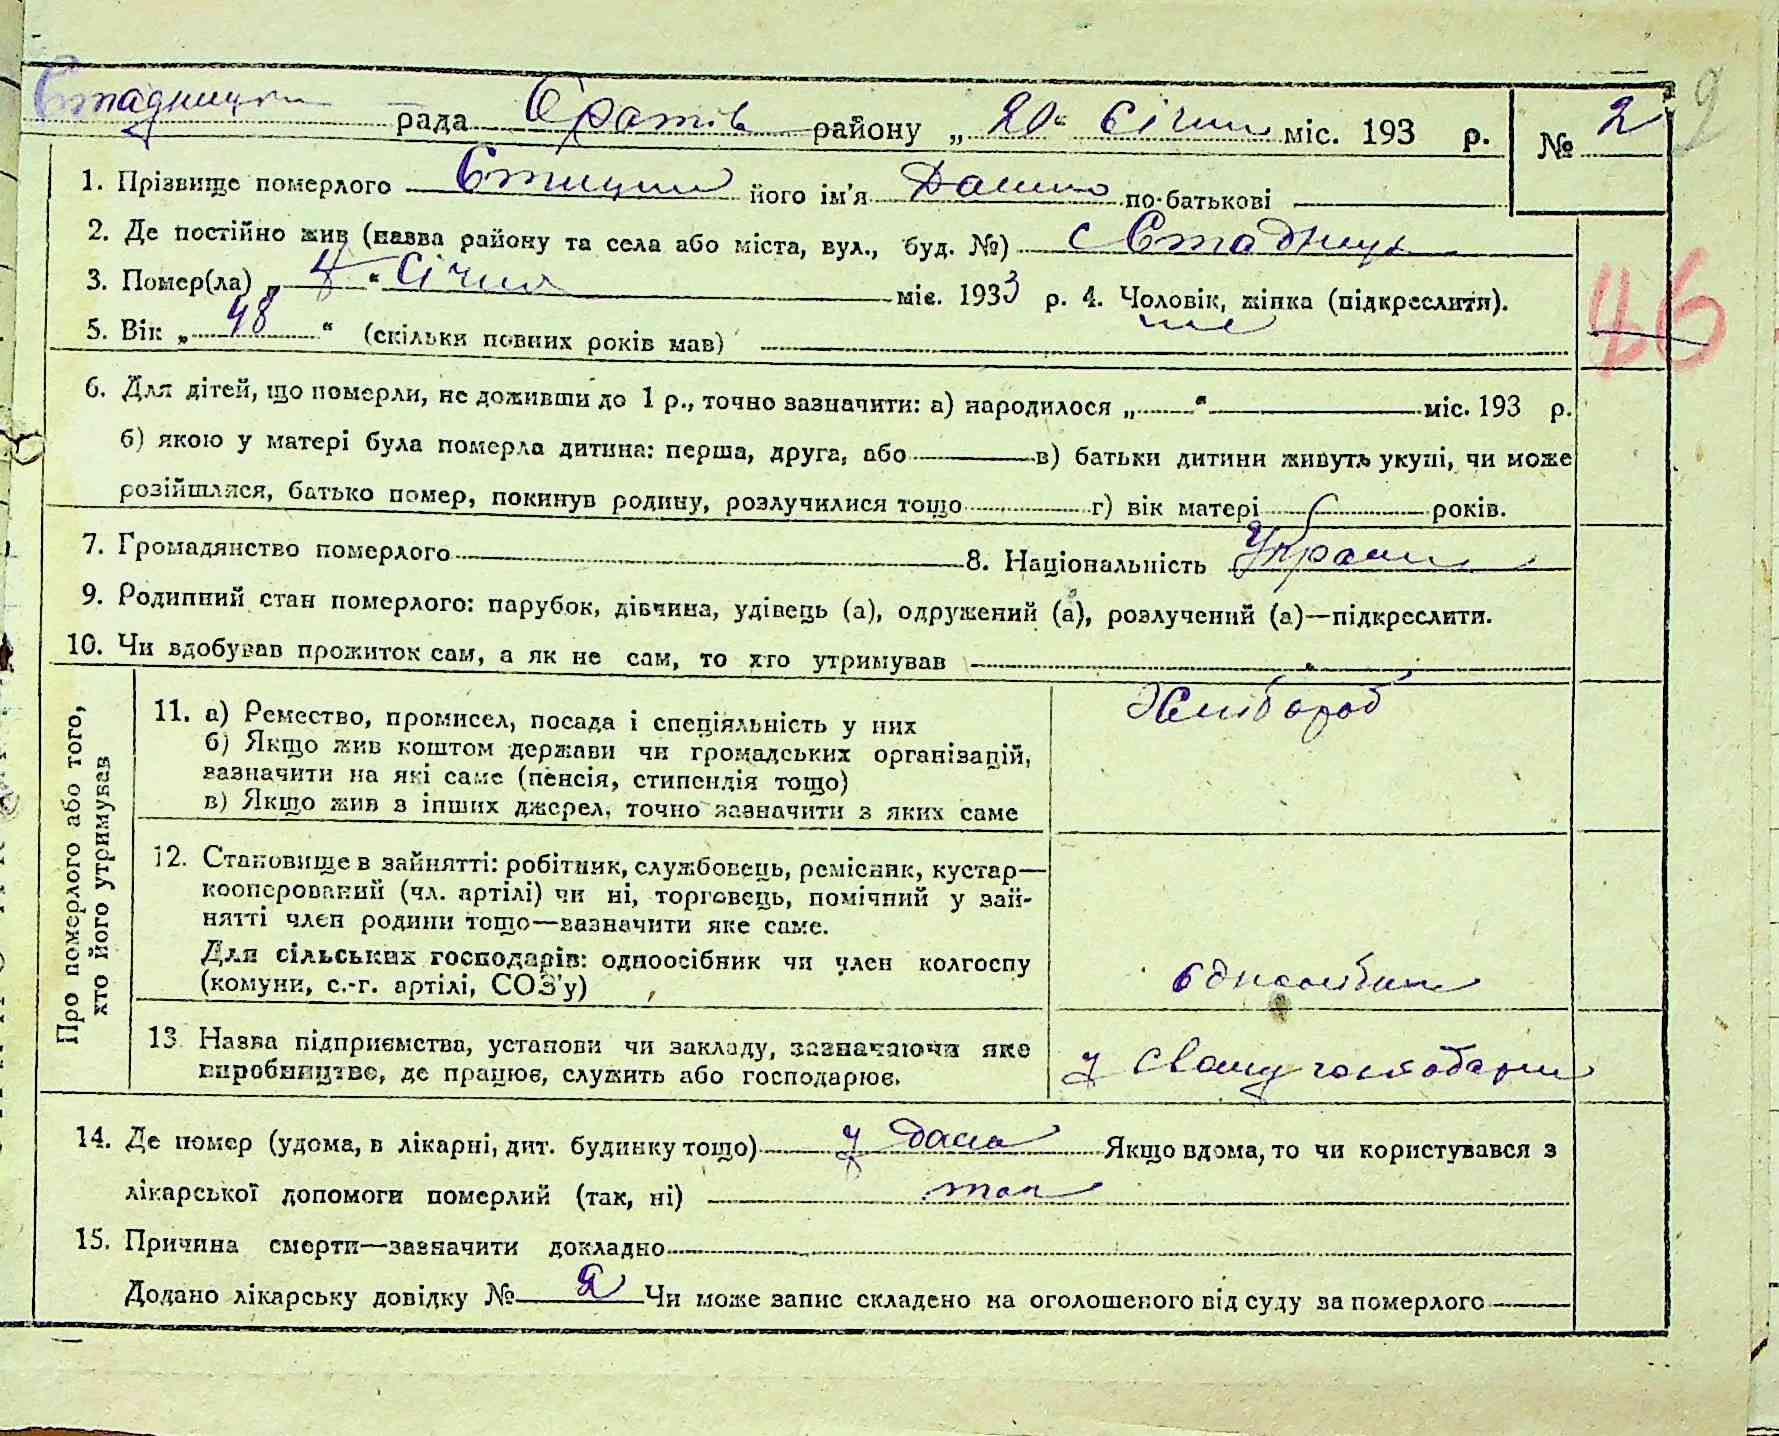 Стадницька рада Оратів району „ 20 " січня міс. 193 р. № 2
1. Прізвище померлого його ім'я по-батькові
2. Де постійно жив (назва району та села або міста, вул., буд. №) с Стадниця
3. Помер(ла) „ " січня міс. 1933 р. 4. Чоловік, жінка (підкреслити).
5. Вік „ 48 " (скільки повних років мав)
46
6. Для дітей, що померли, не доживши до 1 р., точно зазначити: а) народилося „ " міс. 193 р.
б) якою у матері була померла дитина: перша, друга, або в) батьки дитини живуть укупі, чи може
розійшлися, батько помер, покинув родину, розлучилися тощо г) вік матері років.
7. Громадянство померлого 8. Національність Україн
9. Родинний стан померлого: парубок, дівчина, удівець (а), одружений (а), розлучений (а)—підкреслити.
10. Чи вдобував прожиток сам, а як не сам, то хто утримував
Про померлого або того, хто його утримував
11. а) Ремество, промисел, посада і спеціяльність у них Хлібороб
б) Якщо жив коштом держави чи громадських організацій,
зазначити на які саме (пенсія, стипендія тощо)
в) Якщо жив з інших джерел, точно зазначити з яких саме
12. Становище в зайнятті: робітник, службовець, ремісник, кустар—
кооперований (чл. артілі) чи ні, торговець, помічний у зай-
нятті член родини тощо—зазначити яке саме.
Для сільських господарів: одноосібник чи член колгоспу
(комуни, с.-г. артілі, СОЗ'у) одноосібник
13. Назва підприємства, установи чи закладу, зазначаючи яке
виробництво, де працює, служить або господарює. у свому господарстві
14. Де помер (удома, в лікарні, дит. будинку тощо) у дома Якщо вдома, то чи користувався з
лікарської допомоги померлий (так, ні) так
15. Причина смерти—зазначити докладно
Додано лікарську довідку № Чи може запис складено на оголошеного від суду за померлого